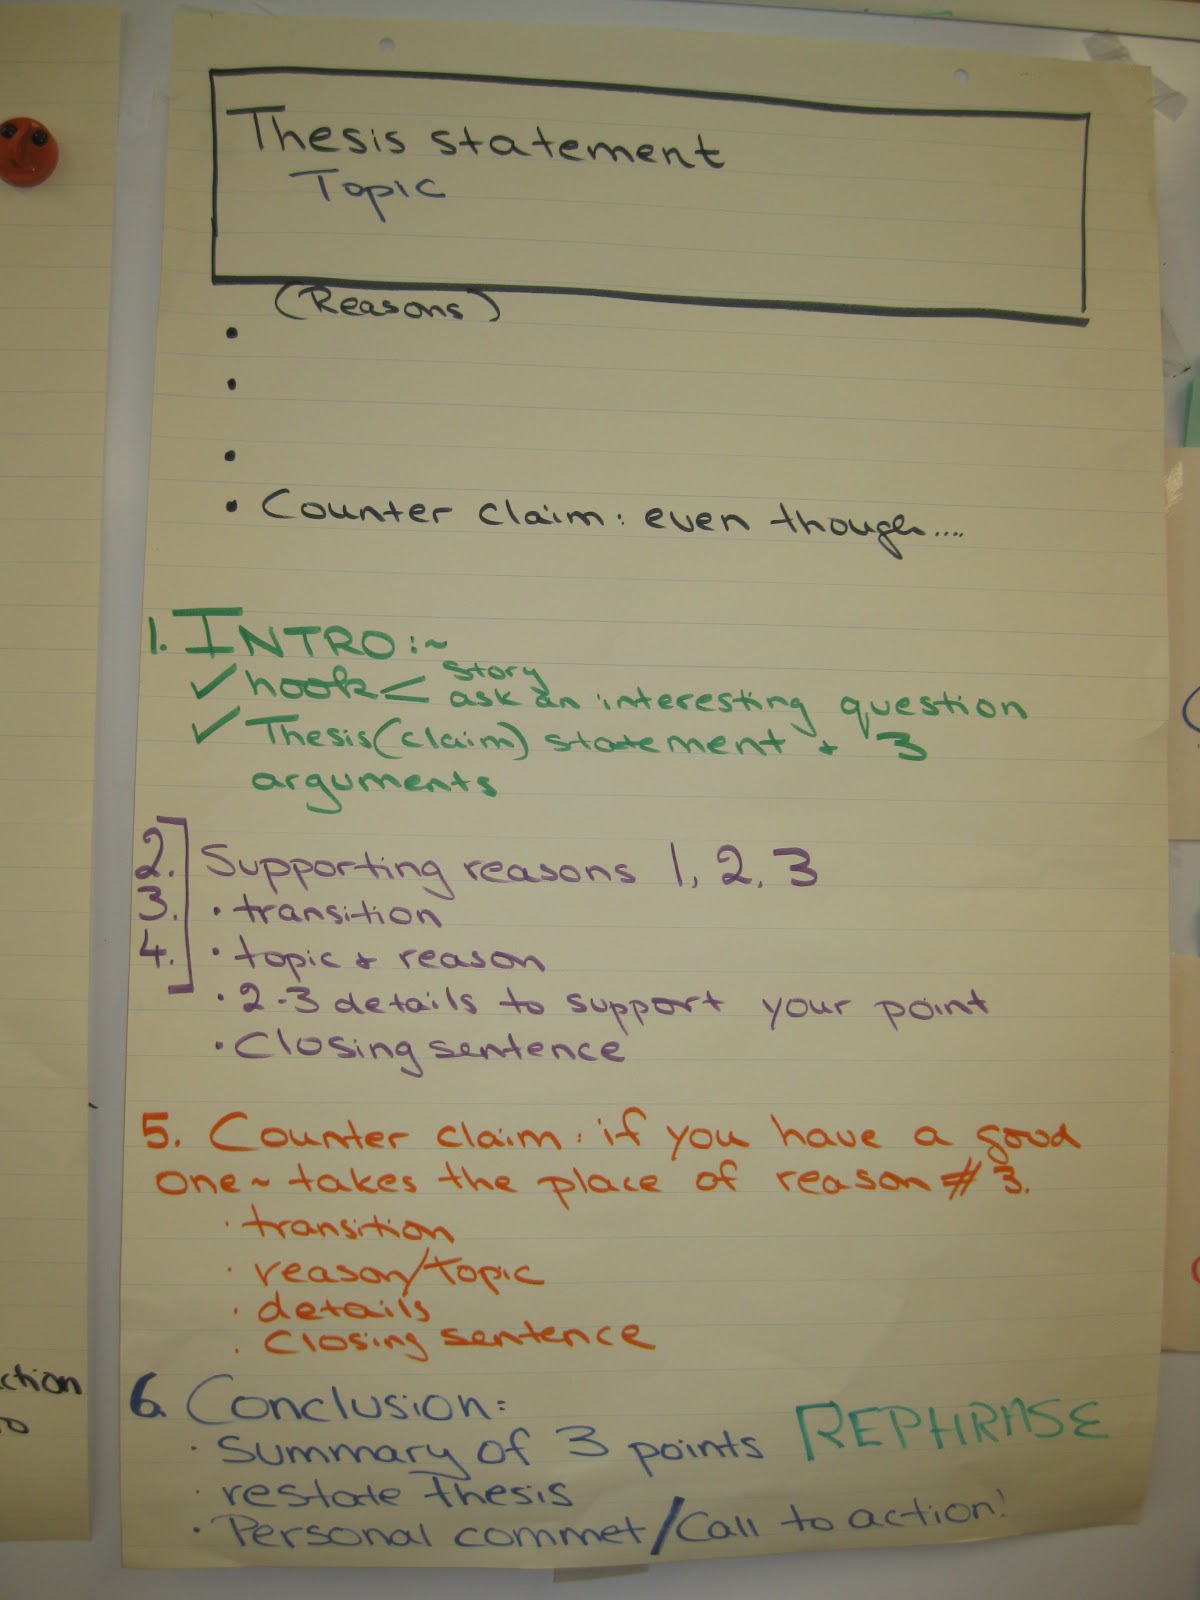 Thesis statement
Topic
(Reasons)
•
•
•
• Counter claim: even though....
1. INTRO:~
✓ hook < story
ask an interesting question
✓ Thesis (claim) statement + 3
arguments
2. Supporting reasons 1, 2, 3
3. • transition
4. • topic + reason
• 2-3 details to support your point
• Closing sentence
5. Counter claim: if you have a good
one ~ takes the place of reason # 3.
• transition
• reason/topic
• details
• Closing sentence
6. Conclusion:
• Summary of 3 points REPHRASE
• restate Thesis
• Personal commet/Call to action!
ction